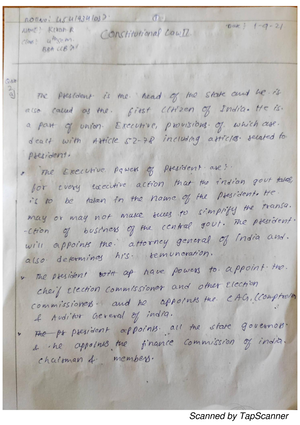 Constitutional Law II
The president is the head of the state and he is
also called as the first citizen of India. He is
a part of union Executive, provisions of which are
dealt with Article 52-78 including articles related to
president.
The Executive Powers of President are:-
For every executive action that the indian govt takes
is to be taken in the name of the President. He
may or may not make rules to simplify the transa-
ction of business of the central govt. The president
will appoints the attorney general of India and
also determines his remuneration.
The president have powers to appoint the
cheif election commissioner and other election
commissioners and he appoints the C.A.G. (comptroller
& Auditor General of India.
president appoints all the state governors
& he appoints the finance commission of india
chairman & members.
Scanned by TapScanner